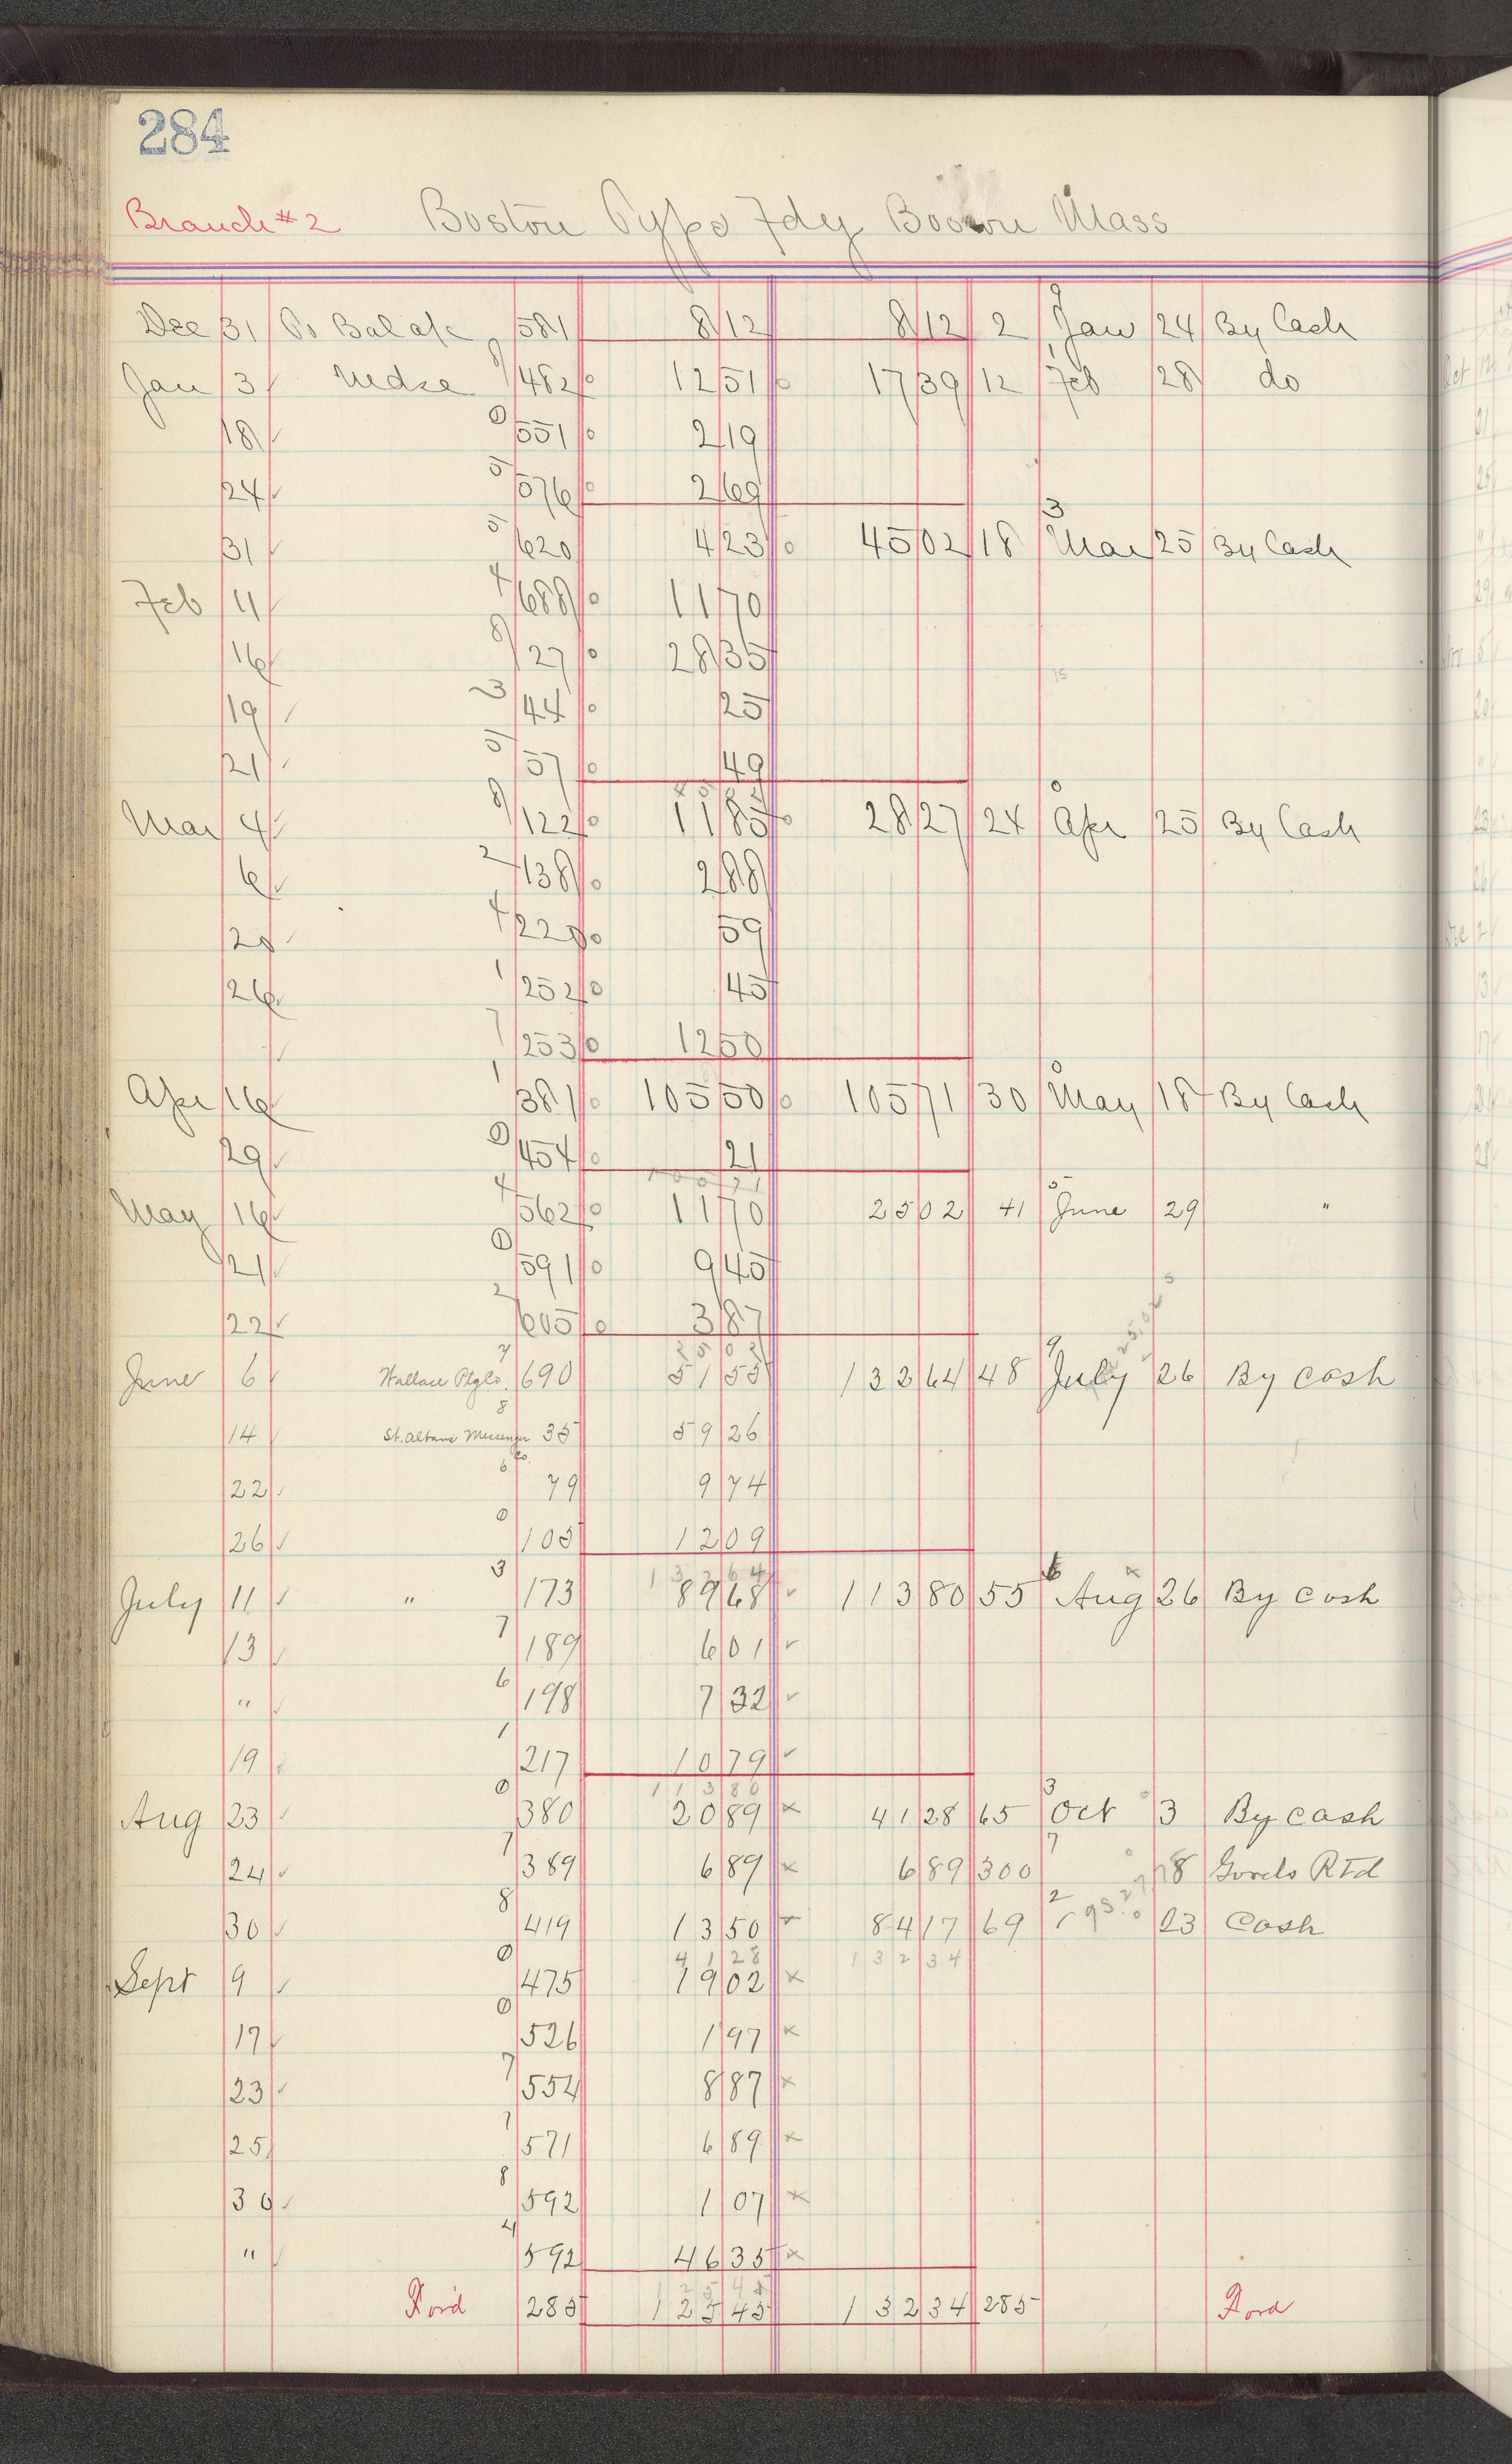 284
Branch #2 Boston Type Fdy Boston Mass
Dec 31 To Bal a/c 581 8 12 8 12 2 9 Jan 24 By Cash
Jan 3 Mdse 8 482 12 51 17 39 12 1 Feb 28 do
18 0 551 2 19
24 5 576 2 69
31 5 620 4 23 45 02 18 3 Mar 25 By Cash
Feb 11 4 688 11 70
16 8 27 28 35
19 3 44 25
21 5 57 49
45 02
Mar 4 8 122 11 85 28 27 24 0 Apr 25 By Cash
6 2 138 2 88
20 4 220 59
26 1 252 45
7 253 12 50
Apr 16 1 381 105 50 105 71 30 0 May 18 By Cash
29 0 454 21
105 71
May 16 4 562 11 70 25 02 41 5 June 29 "
21 0 591 9 45
22 2 605 3 87
25 02
June 6 Wallace Ptg Co. 7 690 51 55 132 64 48 9 July 26 By Cash
14 St. Albans Messenger Co 8 35 59 26
22 6 79 9 74
26 0 105 12 09
132 64
July 11 " 3 173 89 68 113 80 55 6 Aug 26 By Cash
13 7 189 6 01
" 6 198 7 32
19 1 217 10 79
113 80
Aug 23 0 380 20 89 x 41 28 65 3 Oct 3 By Cash
24 7 389 6 89 x 6 89 300 7 18 Goods Rtd
30 8 419 13 50 84 17 69 2 23 Cash
41 28 132 34
Sept 9 0 475 19 02 x
17 0 526 1 97 x
23 7 554 8 87 x
25 1 571 6 89 x
30 8 592 1 07 x
" 4 592 46 35 x
125 45
Ford 285 125 45 132 34 285 Ford